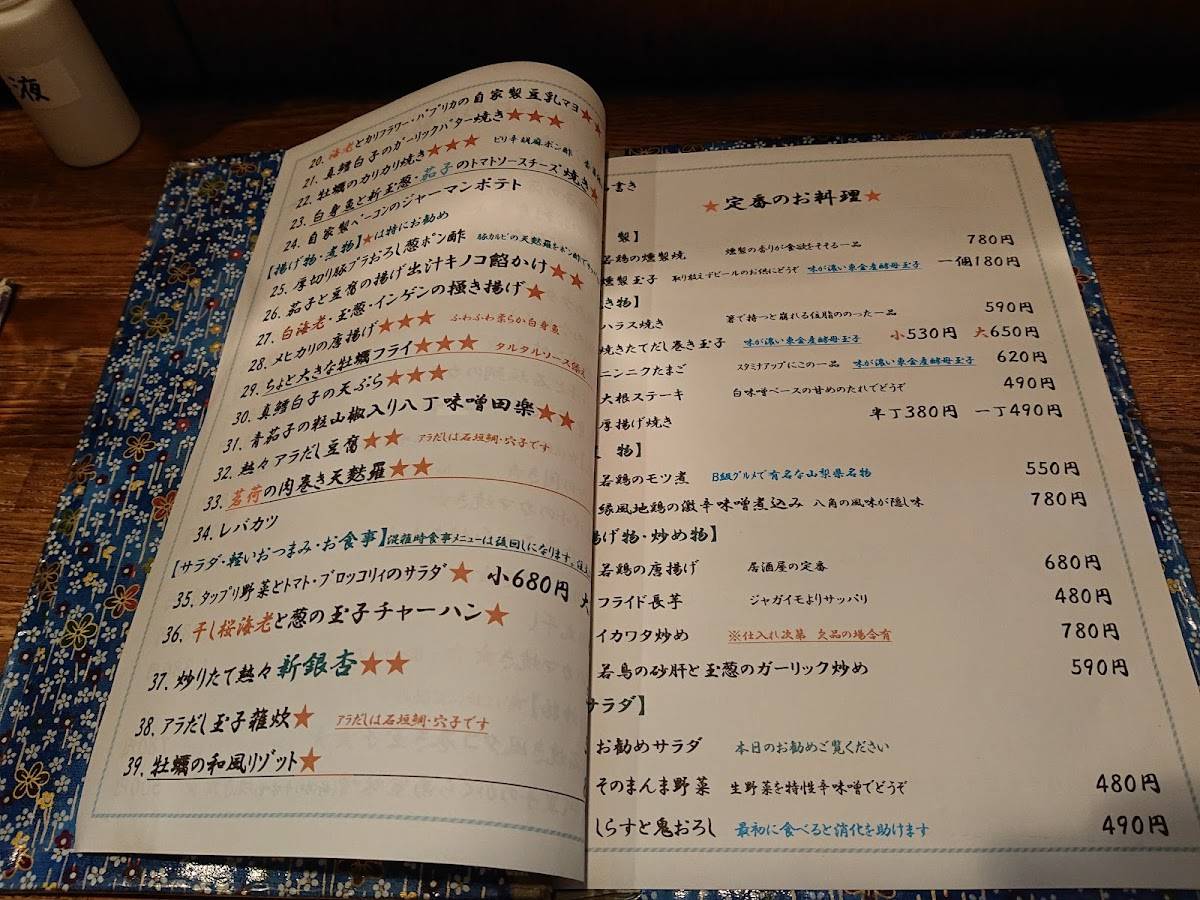 液
20. 海老とカリフラワー・パプリカの自家製豆乳マヨ★★
21. 真鱈白子のガーリックバター焼き★★★
22. 牡蠣のカリカリ焼き★★★ ピリ辛胡麻ポン酢
23. 白身魚と新玉葱・茄子のトマトソースチーズ焼き★
24. 自家製ベーコンのジャーマンポテト
【揚げ物・煮物】★は特にお勧め
25. 厚切り豚プラおろし葱ポン酢 豚カルビの天麩羅をポン酢で
26. 茄子と豆腐の揚げ出汁キノコ餡かけ★★
27. 白海老・玉葱・インゲンの掻き揚げ★
28. メヒカリの唐揚げ★★★ ふわふわ柔らか白身魚
29. ちょと大きな牡蠣フライ★★★ タルタルソース添え
30. 真鱈白子の天ぷら★★★
31. 青茄子の粒山椒入り八丁味噌田楽★★
32. 熱々アラだし豆腐★★ アラだしは石垣鯛・穴子です
33. 茗荷の肉巻き天麩羅★★
34. レバカツ
【サラダ・軽いおつまみ・お食事】混雑時食事メニューは後回しになります。
35. タップリ野菜とトマト・ブロッコリィのサラダ★ 小680円 大
36. 干し桜海老と葱の玉子チャーハン★
37. 炒りたて熱々新銀杏★★
38. アラだし玉子雑炊★ アラだしは石垣鯛・穴子です
39. 牡蠣の和風リゾット★
書き
★定番のお料理★
製】
若鶏の燻製焼 燻製の香りが食欲をそそる一品 780円
燻製玉子 取り敢えずビールのお供にどうぞ 味が濃い東金産酵母玉子 一個180円
き物】
ハラス焼き 箸で持つと崩れる位脂ののった一品 590円
焼きたてだし巻き玉子 味が濃い東金産酵母玉子 小530円 大650円
ニンニクたまご スタミナアップにこの一品 味が濃い東金産酵母玉子 620円
大根ステーキ 白味噌ベースの甘めのたれでどうぞ 490円
厚揚げ焼き 半丁380円 一丁490円
物】
若鶏のモツ煮 B級グルメで有名な山梨県名物 550円
縁風地鶏の微辛味噌煮込み 八角の風味が隠し味 780円
揚げ物・炒め物】
若鶏の唐揚げ 居酒屋の定番 680円
フライド長芋 ジャガイモよりサッパリ 480円
イカワタ炒め ※仕入れ次第 欠品の場合有 780円
若鳥の砂肝と玉葱のガーリック炒め 590円
サラダ】
お勧めサラダ 本日のお勧めご覧ください
そのまんま野菜 生野菜を特性辛味噌でどうぞ 480円
しらすと鬼おろし 最初に食べると消化を助けます 490円